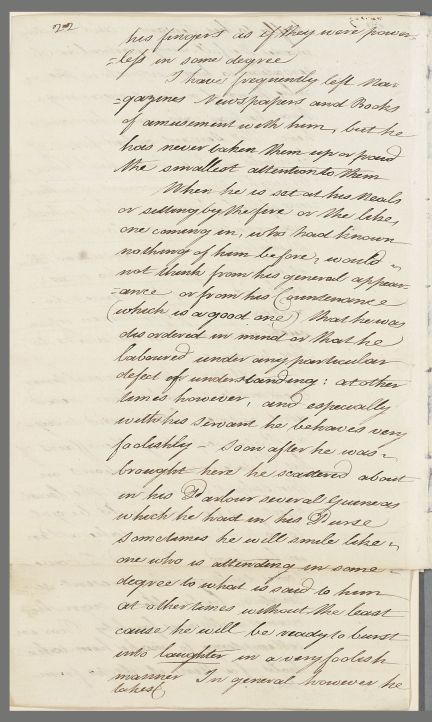 22
his fingers as if they were power-
=less in some degree
I have frequently left Ma-
=gazines Newspapers and Books
of amusement with him, but he
has never taken them up or paid
the smallest attention to them
When he is set at his Meals
or sitting by the fire or the like,
one coming in, who had known
nothing of him before, would
not think from his general appear-
=ance or from his Countenance
(which is a good one) that he was
disordered in mind or that he
laboured under any particular
defect of understanding: at other
times however, and especially
with his servant he behaves very
foolishly – Soon after he was
brought here he scattered about
in his Parlour several Guineas
which he had in his Purse
Sometimes he will smile like
one who is attending in some
degree to what is said to him
at other times without the least
cause he will be ready to burst
into laughter in a very foolish
manner In general however he
takes